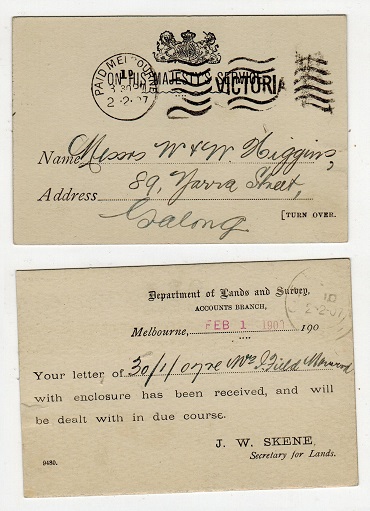 PAID MELBOURNE
1D
3 30 PM
2-2-07
ON HIS MAJESTY'S SERVICE.
VICTORIA
Name Messrs W & W. Higgins,
Address 89, Yarra Street,
Geelong
[TURN OVER.
Department of Lands and Survey,
ACCOUNTS BRANCH,
Melbourne, FEB 1 1907 190
1D
2-2-07
Your letter of 30/1/07 re Mrs J. Field
with enclosure has been received, and will
be dealt with in due course.
J. W. SKENE,
Secretary for Lands.
9480.